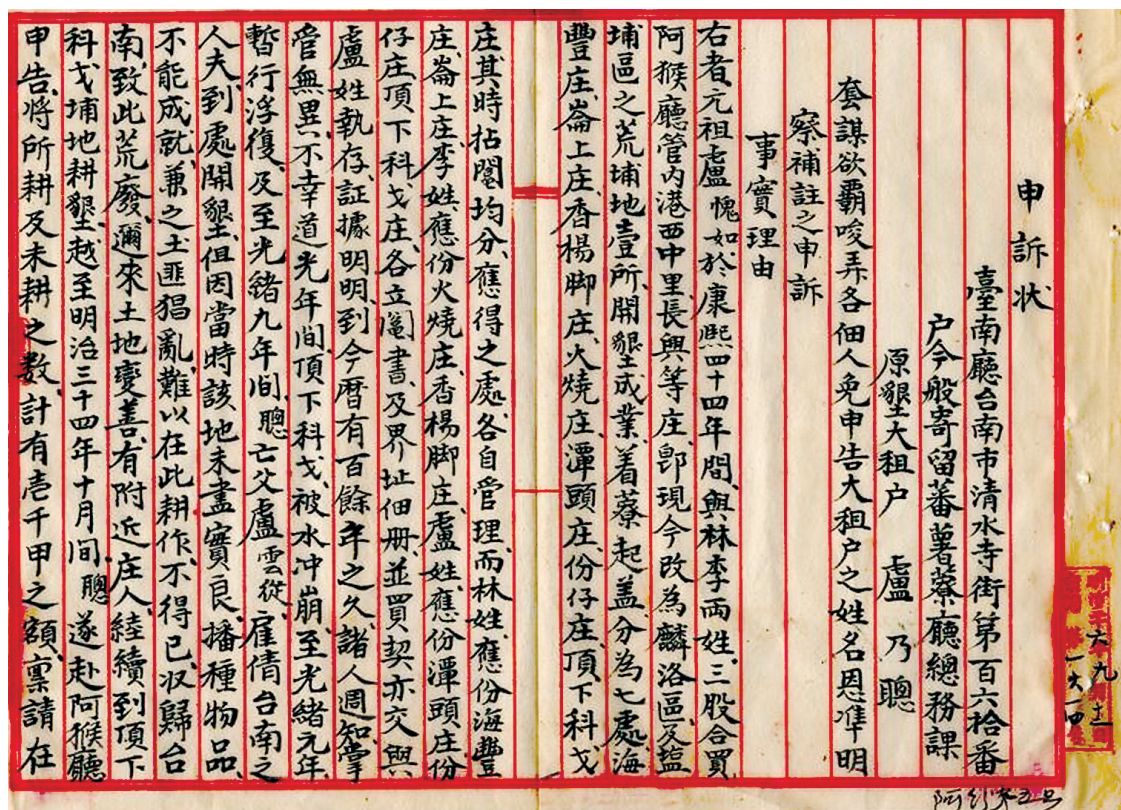 申訴状
臺南廳台南市清水寺街第百六拾番
户今般寄留蕃薯藔廳總務課
原墾大租户 盧乃聰
套謀欲霸唆弄各佃人免申告大租户之姓名恩准明
察補註之申訴
事實理由
右者元祖盧愧如於康熙四十四年間、與林李両姓、三股合買
阿猴廳管内港西中里長興等庄、即現今改為麟洛區及塩
埔區之荒埔地壹所、開墾成業、着藔起盖分為七處、海
豐庄、崙上庄、香楊脚庄、火燒庄、潭頭庄、份仔庄、頂下科戈
庄、其時拈鬮均分、應得之處、各自管理、而林姓應份海豐
庄、崙上庄、李姓應份火燒庄、香楊脚庄、盧姓應份潭頭庄、份
仔庄、頂下科戈庄、各立鬮書、及界址佃册、並買契亦交與
盧姓執存、証據明明、到今暦有百餘年之久、諸人週知、掌
管無異、不幸道光年間、頂下科戈、被水冲崩、至光緒元年、
暫行浮復、及至光緒九年間、聰亡父盧雲從、雇倩台南之
人夫、到處開墾、但因當時該地未盡實良、播種物品、
不能成就、兼之土匪猖亂、難以在此耕作、不得已、収歸台
南、致此荒廢、邇來土地變善、有附近庄人、続續到頂下
科戈埔地耕墾、越至明治三十四年十月間、聰遂赴阿猴廳
申告、將所耕及未耕之数、計有壱千甲之額、稟請在